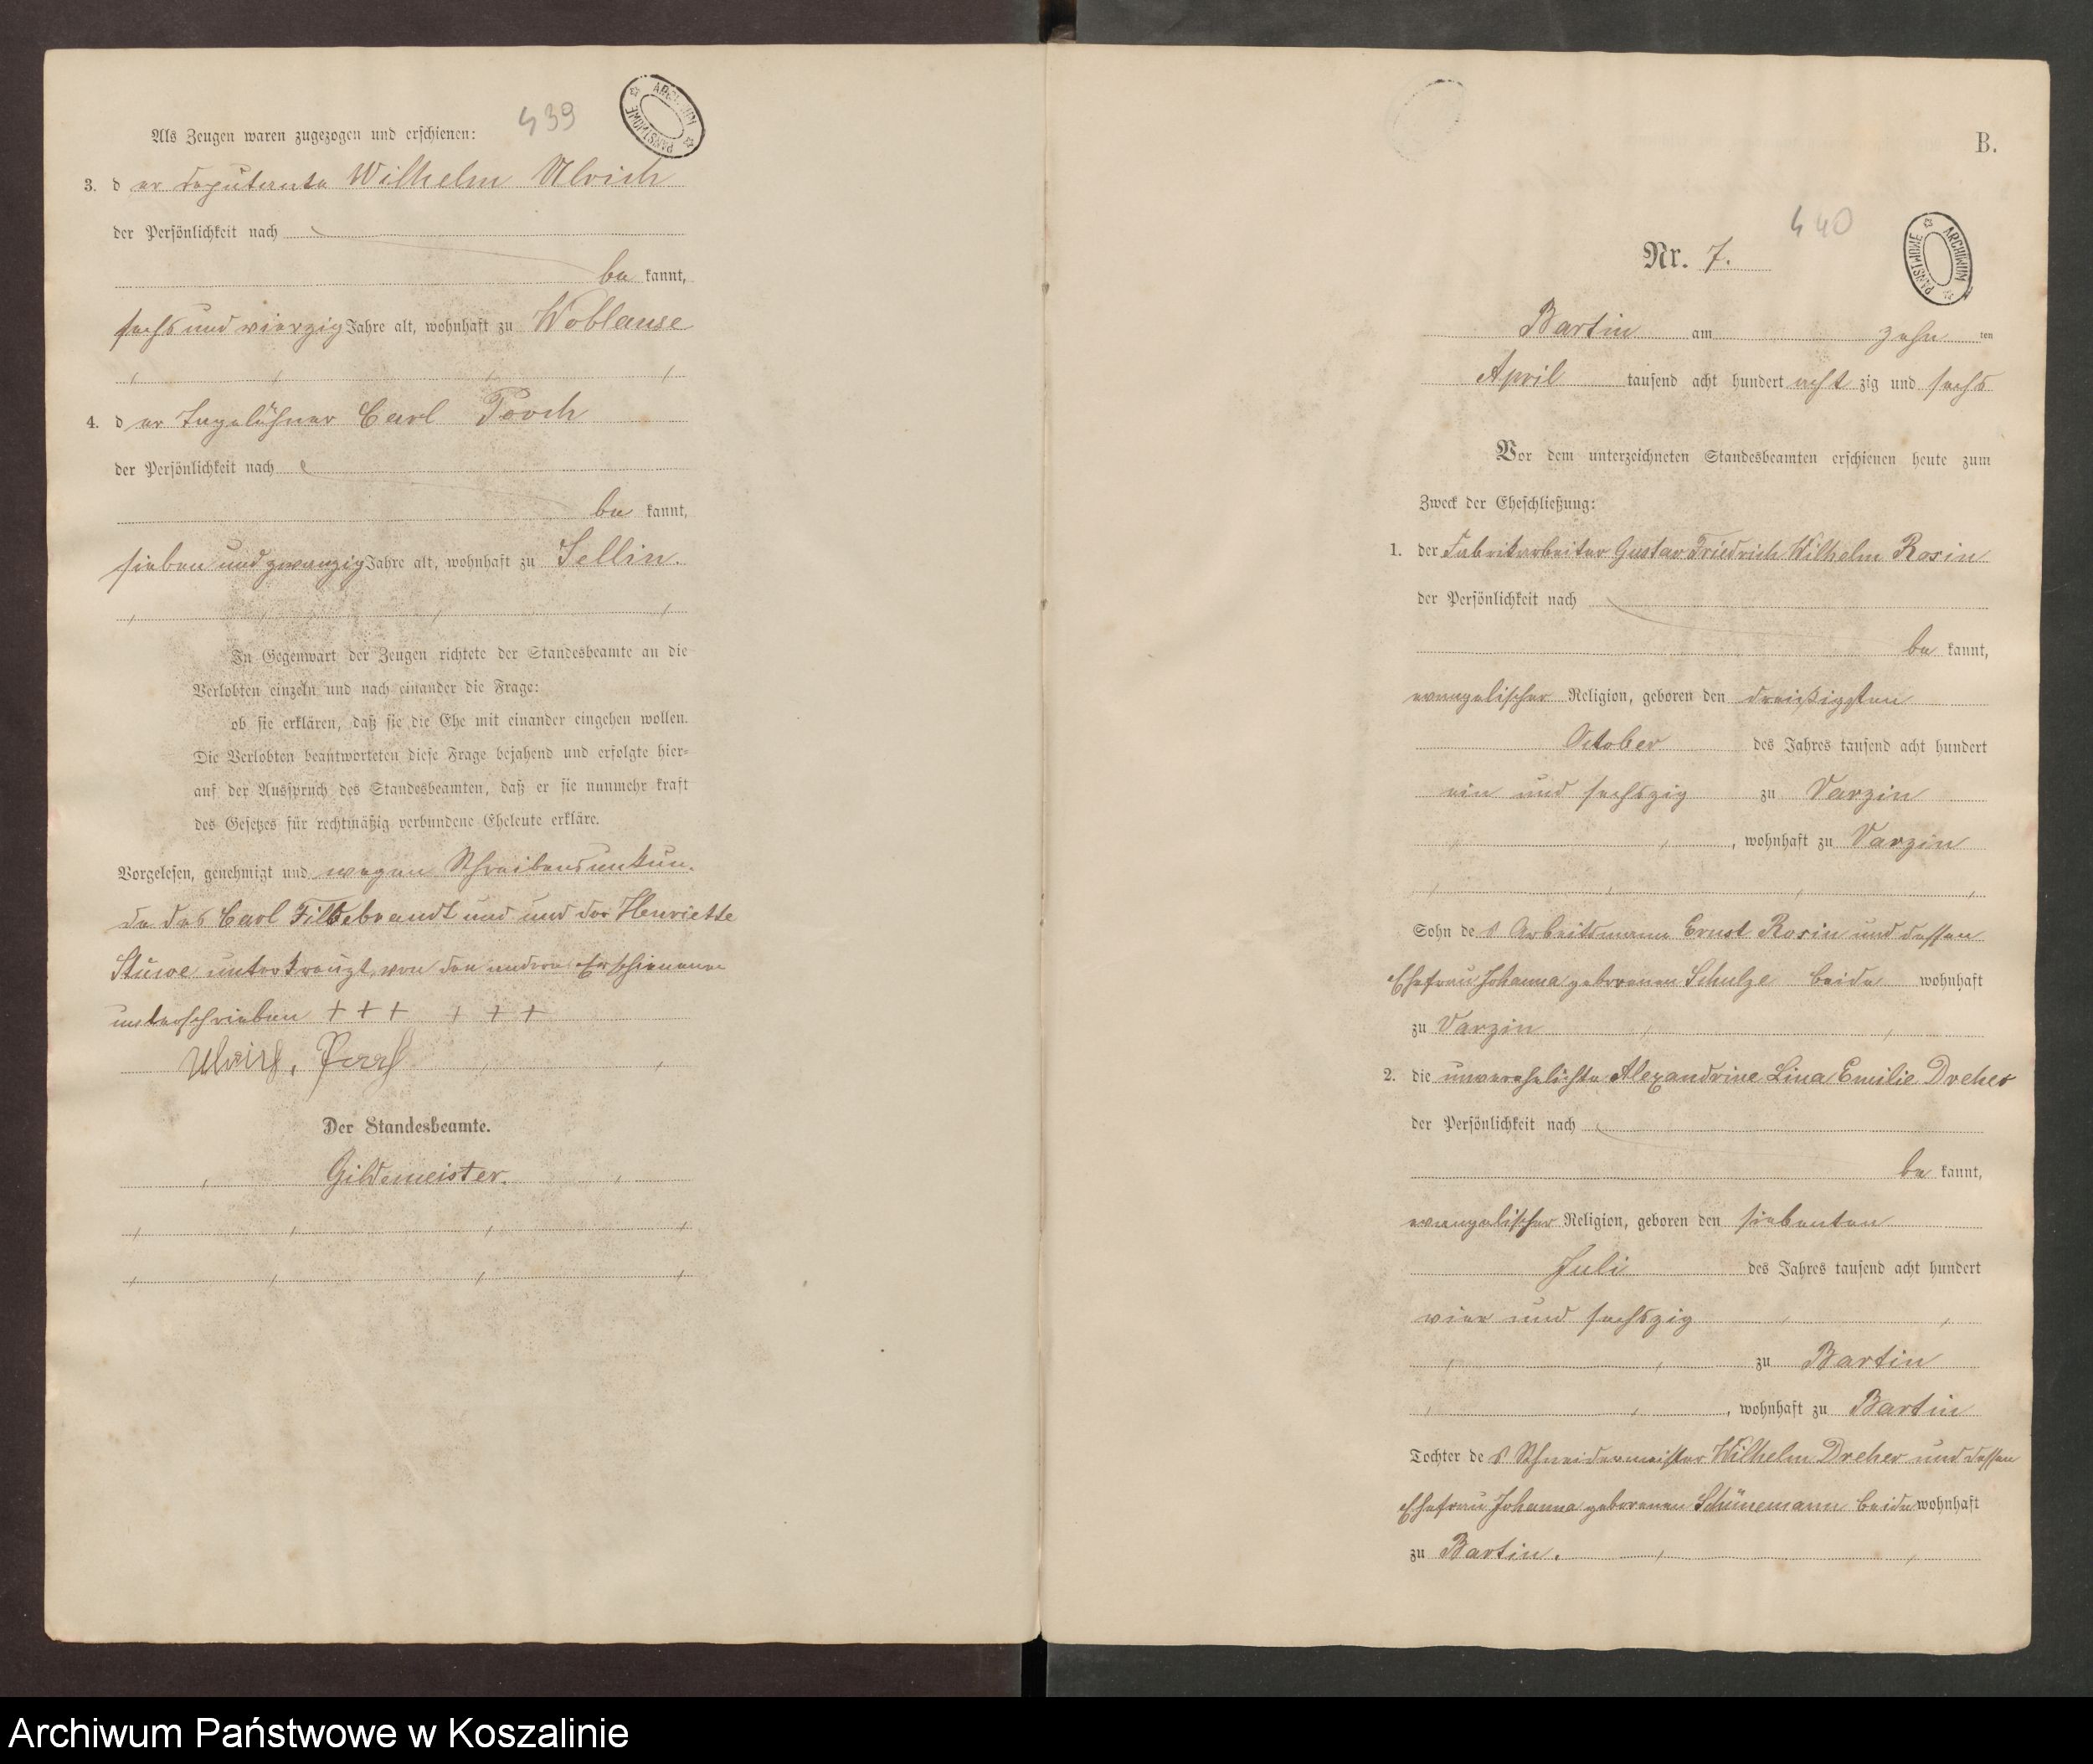 439
ARCHIWUM PAŃSTWOWE
Als Zeugen waren zugezogen und erschienen:
3. der Deputante Wilhelm Ulrich
der Persönlichkeit nach
be kannt,
sechs und vierzig Jahre alt, wohnhaft zu Woblanse
4. der Tagelöhner Carl
der Persönlichkeit nach
be kannt,
sieben und zwanzig Jahre alt, wohnhaft zu Sellin.
In Gegenwart der Zeugen richtete der Standesbeamte an die
Verlobten einzeln und nach einander die Frage:
ob sie erklären, daß sie die Ehe mit einander eingehen wollen.
Die Verlobten beantworteten diese Frage bejahend und erfolgte hier-
auf der Ausspruch des Standesbeamten, daß er sie nunmehr kraft
des Gesetzes für rechtmäßig verbundene Eheleute erkläre.
Vorgelesen, genehmigt und wegen Schreibensunkun-
de des Carl und und der Henriette
Stüwe unterkreuzt, von den andern Erschienenen
unterschrieben + + + + + +
Ulrich,
Der Standesbeamte.
Gildemeister.
B.
440
ARCHIWUM PAŃSTWOWE
Nr. 7.
Bartin am zehn ten
April tausend acht hundert acht zig und sechs
Vor dem unterzeichneten Standesbeamten erschienen heute zum
Zweck der Eheschließung:
1. der Fabrikarbeiter Gustav Friedrich Wilhelm Rosin
der Persönlichkeit nach
be kannt,
evangelischer Religion, geboren den dreißigsten
October des Jahres tausend acht hundert
ein und sechszig zu Varzin
, wohnhaft zu Varzin
Sohn des Arbeitsmann Ernst Rosin und dessen
Ehefrau Johanna geborenen Schulze beide wohnhaft
zu Varzin
2. die unverehelichte Alexandrine Lina Emilie Dreher
der Persönlichkeit nach
be kannt,
evangelischer Religion, geboren den siebenten
Juli des Jahres tausend acht hundert
vier und sechszig
zu Bartin
, wohnhaft zu Bartin
Tochter des Schneidermeister Wilhelm Dreher und dessen
Ehefrau Johanna geborenen Schünemann beide wohnhaft
zu Bartin.
Archiwum Państwowe w Koszalinie